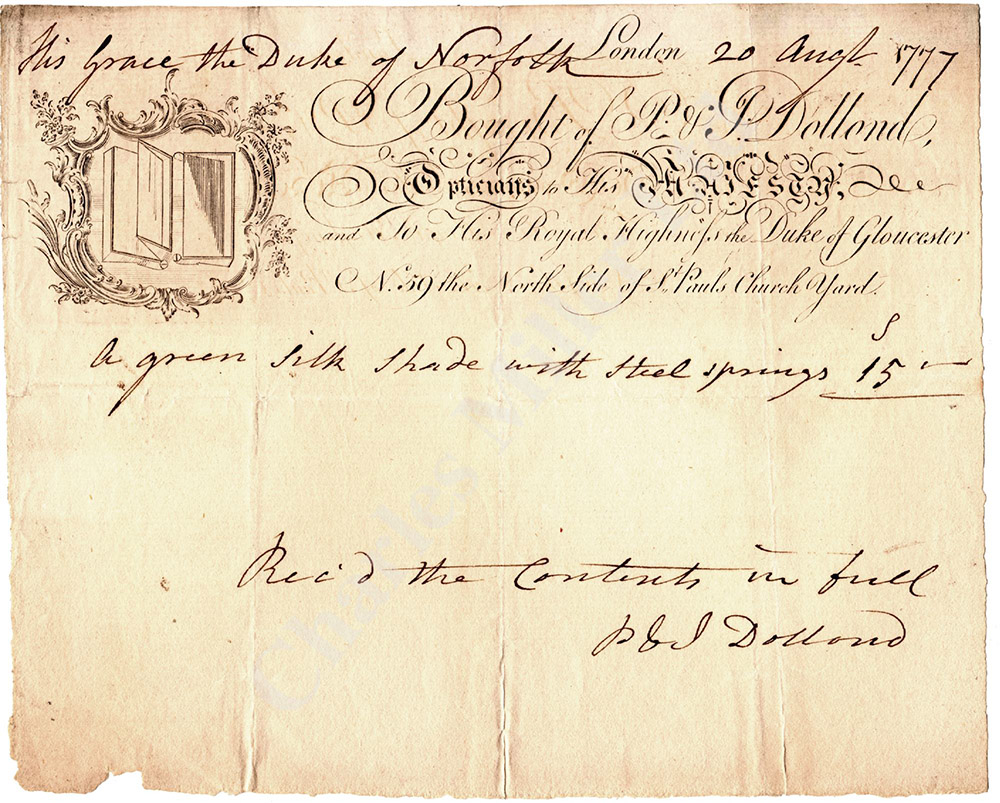 His Grace the Duke of Norfolk London 20 Augt 1777
Bought of P. & J. Dollond,
Opticians to His MAJESTY,
and To His Royal Highness the Duke of Gloucester
No. 59 the North Side of St. Pauls Church Yard.
S
A green silk shade with steel springs 15 -
Rec'd the Contents in full
P & J Dollond
Charles Miller